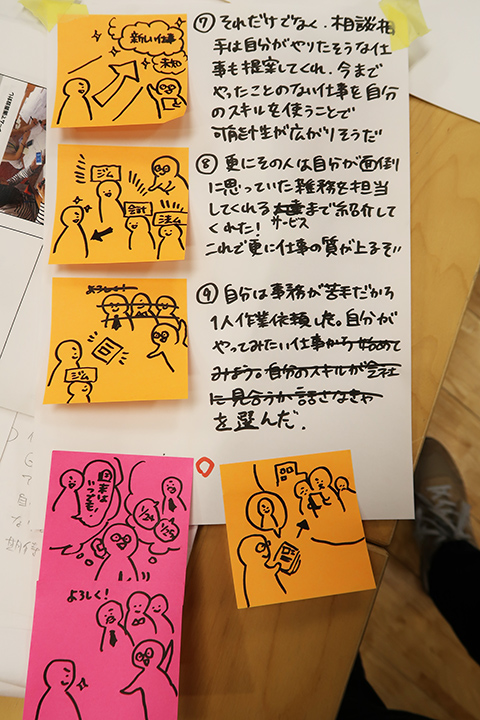 新しい仕事
未知
⑦ それだけでなく、相談相
手は自分がやりたそうな仕
事も提案してくれ、今まで
やったことのない仕事を自分
のスキルを使うことで
可能性が広がりそうだ
ジム
会計
ジム
⑧ 更にその人は自分が面倒
に思っていた雑務を担当
してくれる まで紹介して
サービス
くれた!
これで更に仕事の質が上るぞ!!
よろしく!
ジム
⑨ 自分は事務が苦手だから
1人作業依頼した。自分が
やってみたい仕事から始めて
みよう。自分のスキルが会社
に見合うか話さなきゃ
を選んだ.
週末は
いつでも!
1/24
1/25
よろしく!